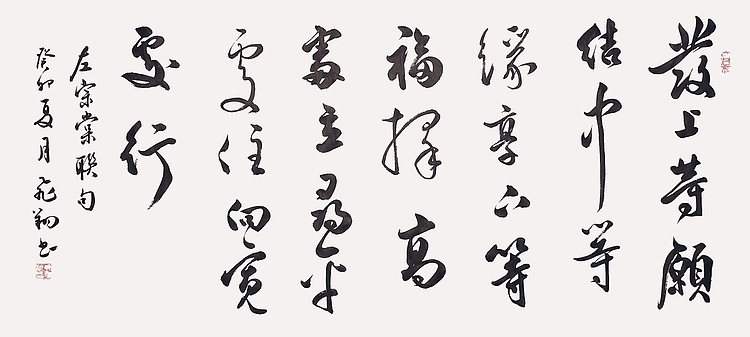 發上等願
結中等
緣享下等
福擇高
處立尋平
處住向寬
處行
左宗棠聯句
癸卯夏月飛翔書